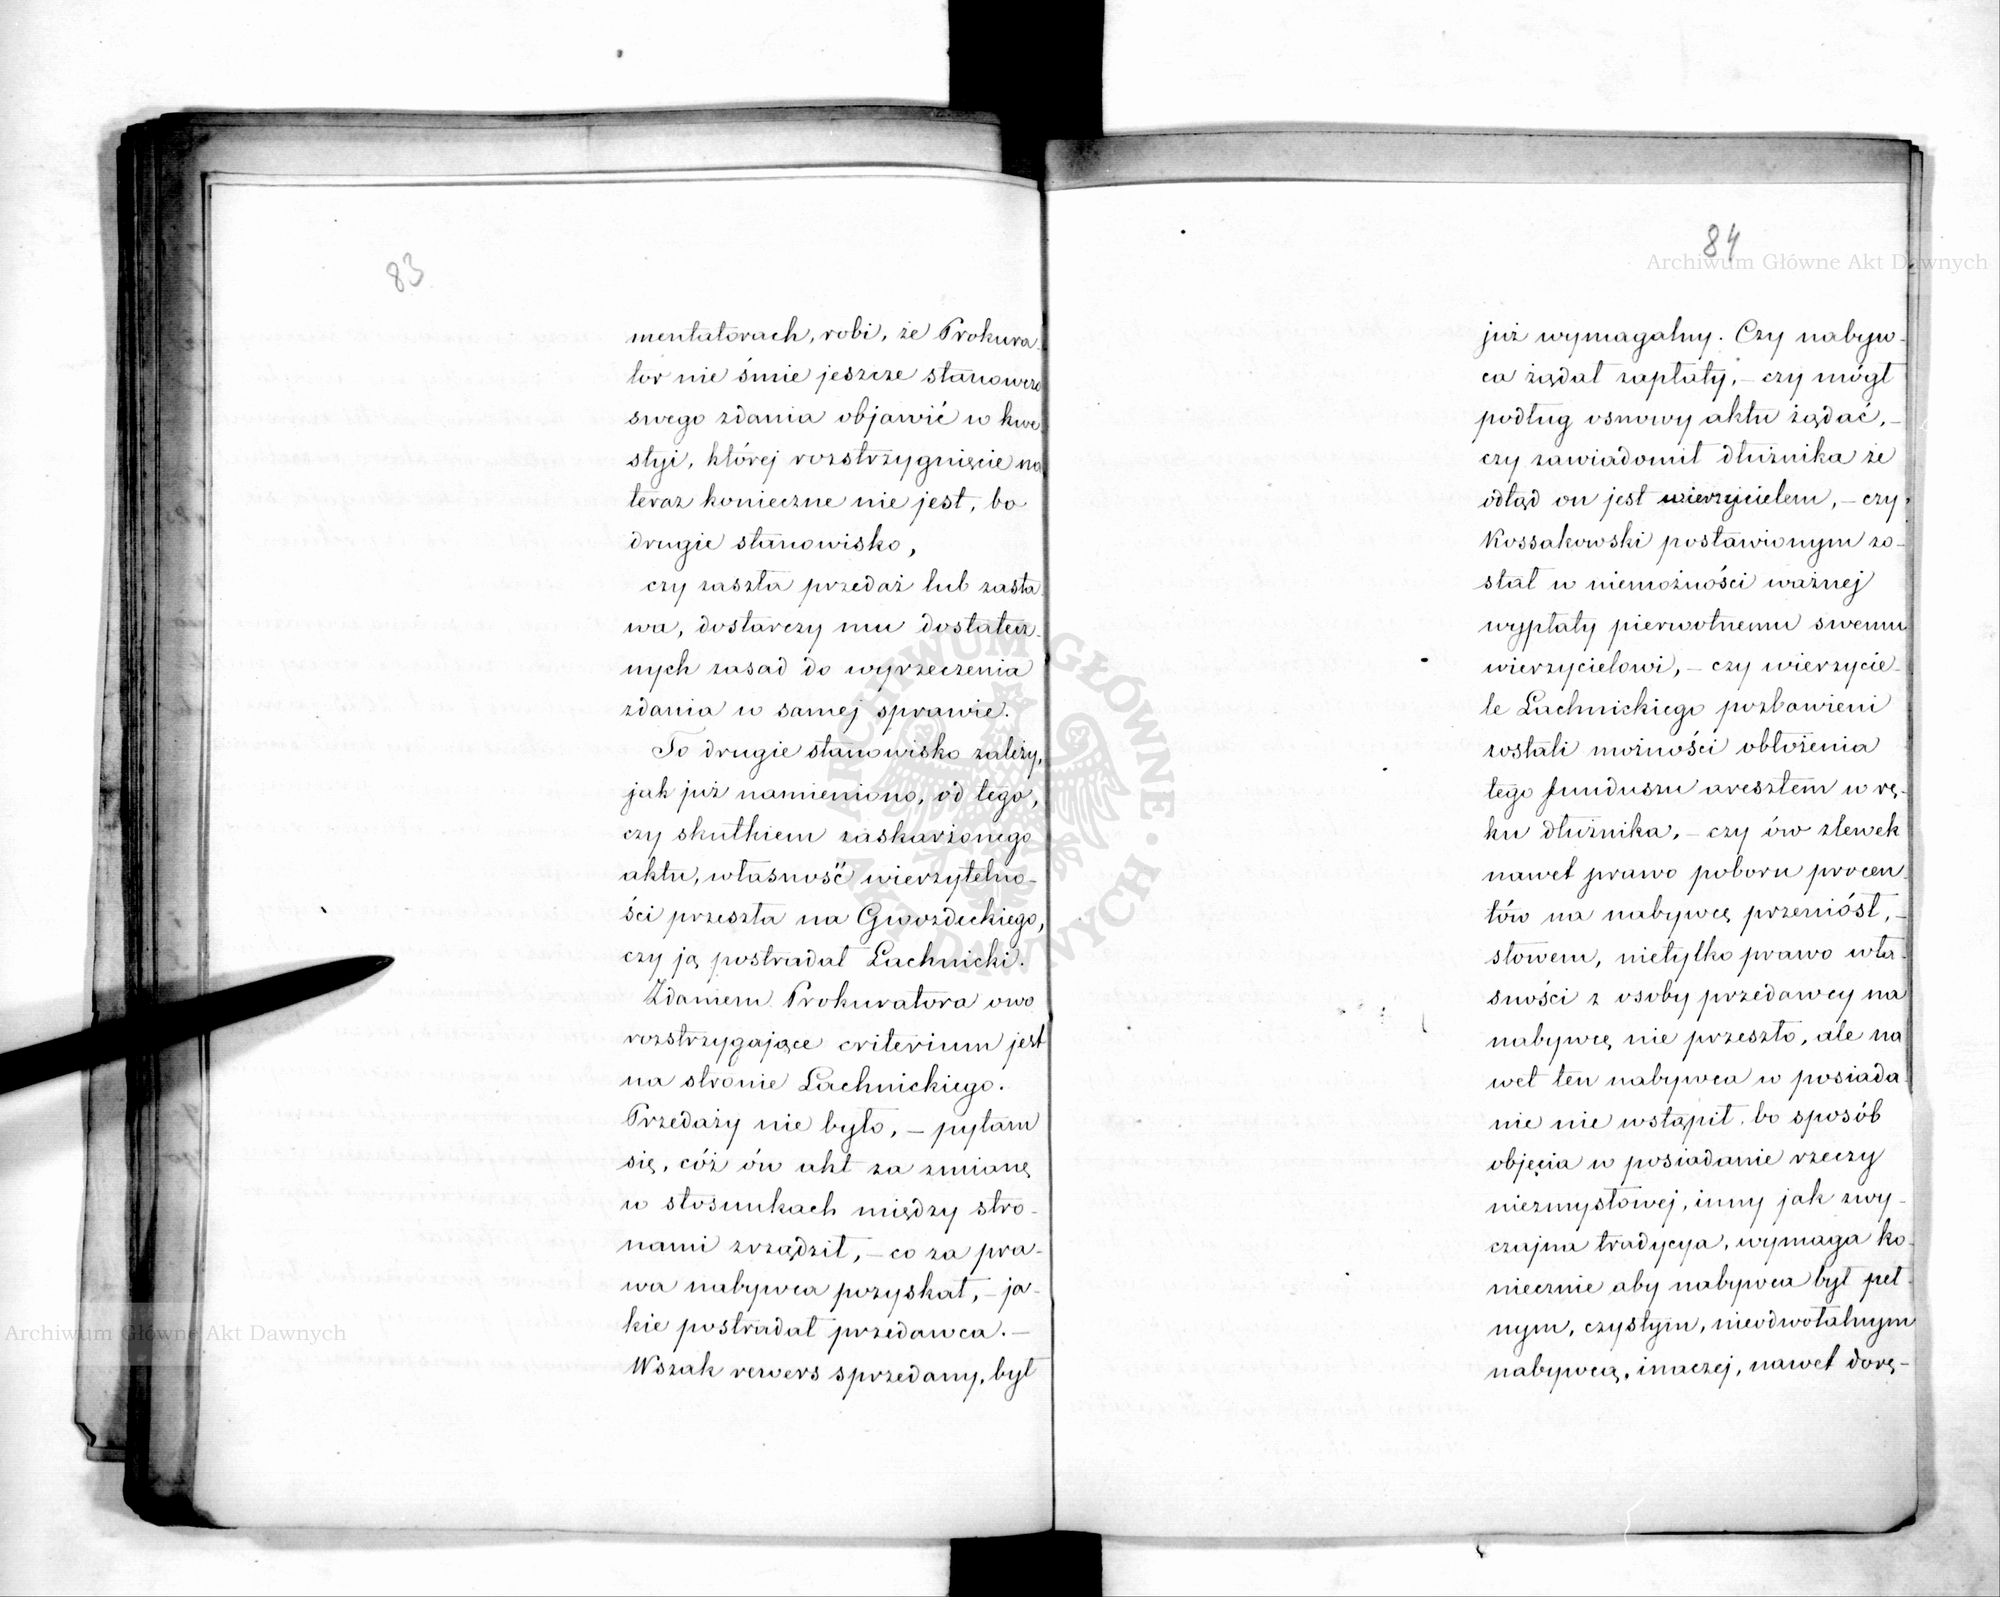 83
mentatorach, robi, że Prokura-
tor nie śmie jeszcze stanowczo
swego zdania objawić w kwe
styi, której rozstrzygnięcie na
teraz konieczne nie jest, bo
drugie stanowisko,
czy zaszła przedaż lub zasta
wa, dostarczy mu dostatecz-
nych zasad do wyrzeczenia
zdania w samej sprawie.
To drugie stanowisko zależy,
jak już namieniono, od tego,
czy skutkiem zaskarżonego
aktu, własność wierzytelno-
ści przeszła na Gwozdeckiego,
czy ją postradał Lachnicki.
Zdaniem Prokuratora owo
rozstrzygające criterium jest
na stronie Lachnickiego.
Przedaży nie było, – pytam
się, cóż ów akt za zmianę
w stosunkach między stro-
nami zrządził, – co za pra-
wa nabywca pozyskał, – ja-
kie postradał przedawca. –
Wszak rewers sprzedany, był
84
już wymagalny. Czy nabyw-
ca żądał zapłaty, – czy mógł
podług osnowy aktu żądać, –
czy zawiadomił dłużnika że
odtąd on jest wierzycielem, – czy
Kossakowski postawionym zo-
stał w niemożności ważnej
wypłaty pierwotnemu swemu
wierzycielowi, – czy wierzycie-
le Lachnickiego pozbawieni
zostali możności obłożenia
tego funduszu aresztem w rę-
ku dłużnika, – czy ów zlewek
nawet prawo poboru procen-
tów na nabywcę przeniósł, –
słowem, nietylko prawo wła-
sności z osoby przedawcy na
nabywcę nie przeszło, ale na
wet ten nabywca w posiada-
nie nie wstąpił, bo sposób
objęcia w posiadanie rzeczy
niezmysłowej, inny jak zwy-
czajna tradycya, wymaga ko-
niecznie aby nabywca był peł-
nym, czystym, nieodwołalnym
nabywcą, inaczej, nawet dorę-
Archiwum Główne Akt Dawnych
Archiwum Główne Akt Dawnych
ARCHIWUM GŁÓWNE AKT DAWNYCH